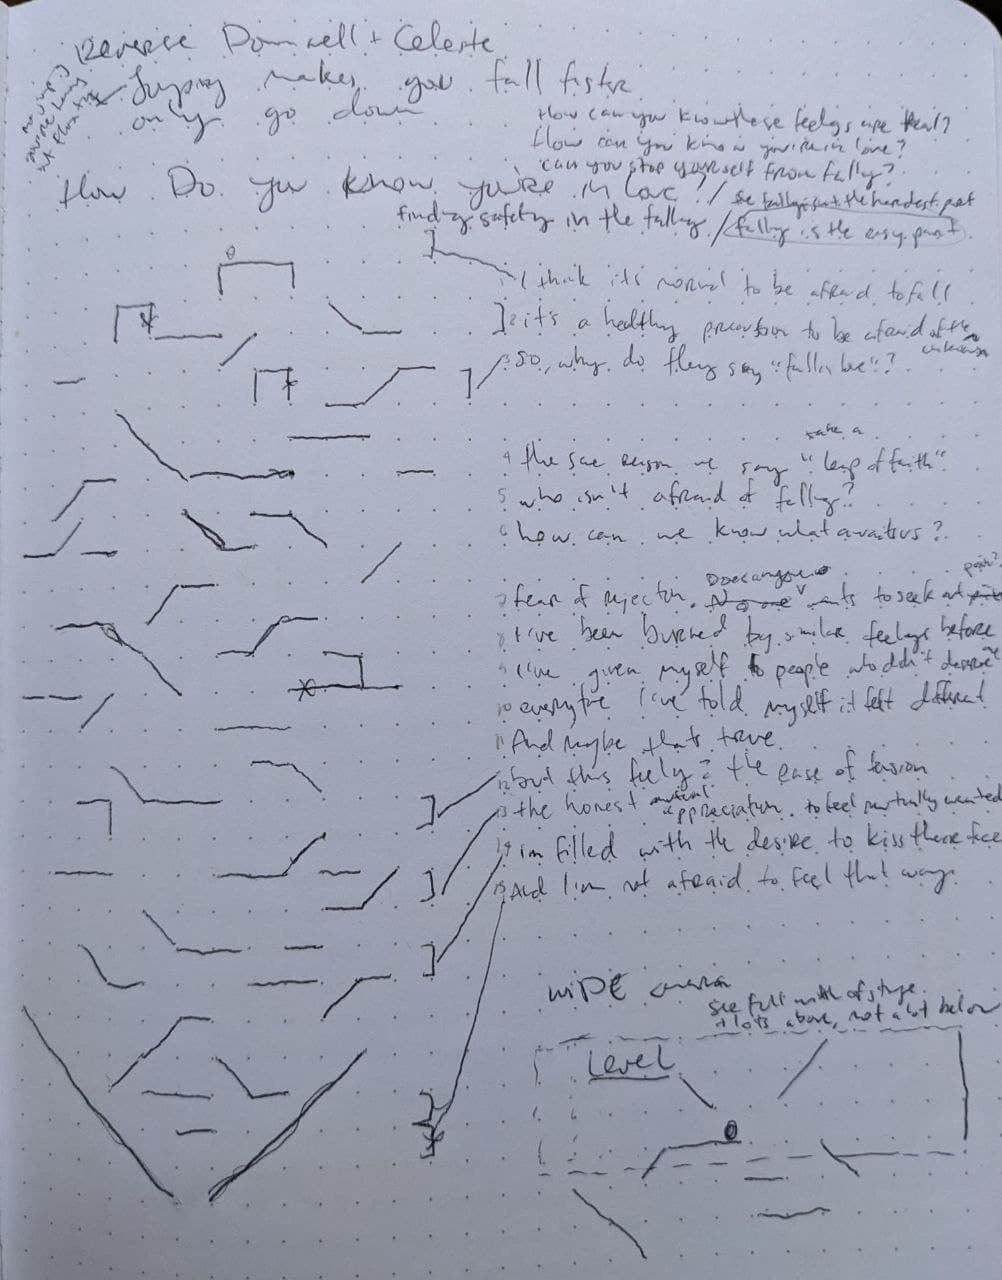 Reverse Downwell + Celeste
Jumping makes you fall faster
only go down
How can you know these feelings are real?
How can you know you're in love?
can you stop yourself from falling?
How Do you know you're in love? /
the falling isn't the hardest part
finding safety in the falling / falling is the easy part
1 I think it's normal to be afraid to fall
2 it's a healthy precaution to be afraid of the unknown
3 so, why do they say "fall in love"?
4 the same reason we say "take a leap of faith".
5 who isn't afraid of falling?
6 how can we know what awaits us?
7 fear of rejection. No one Does anyone wants to seek out pain?
8 I've been burned by similar feelings before
9 I've given myself to people who didn't deserve me
10 everytime I've told myself it felt different
11 And maybe that's true
12 but this feeling? the ease of tension
13 the honest mutual appreciation. to feel mutually wanted
14 im filled with the desire to kiss there face
15 And I'm not afraid to feel that way.
WIDE camera
see full width of stage
+ lots above, not a lot below
Level